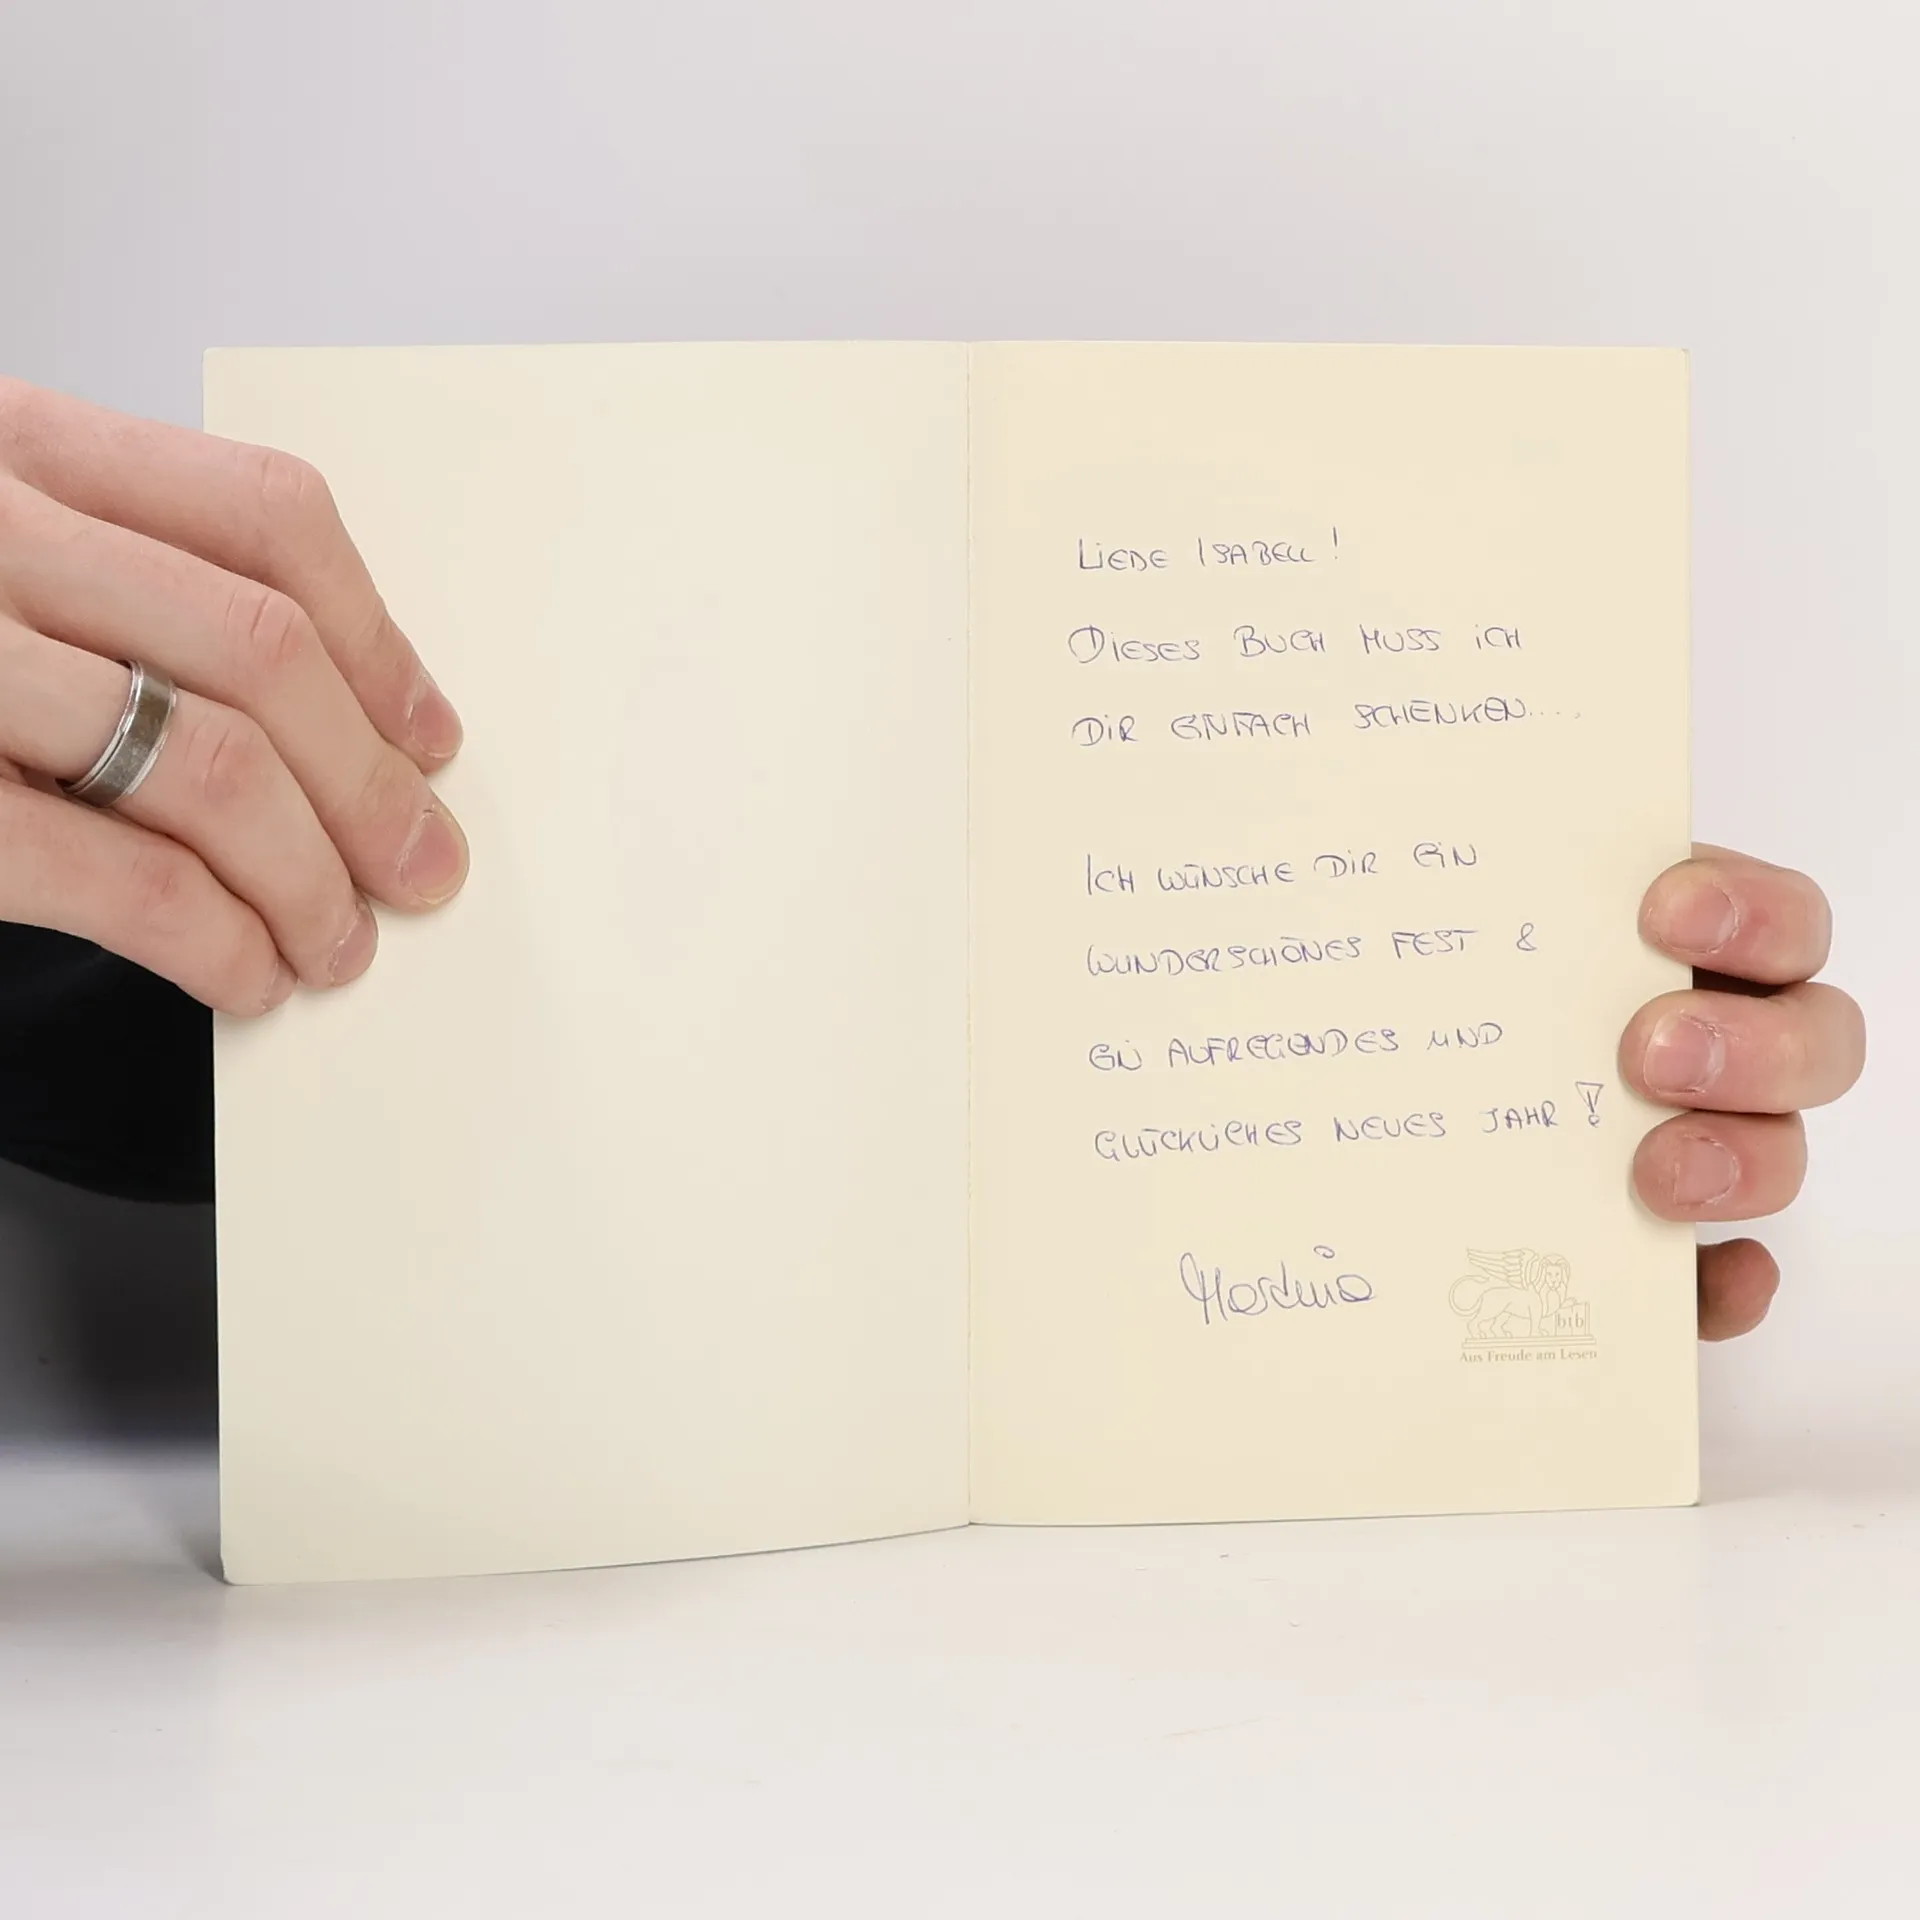 LIEBE ISABELL!
DIESES BUCH MUSS ICH
DIR EINFACH SCHENKEN....
ICH WÜNSCHE DIR EIN
WUNDERSCHÖNES FEST &
EIN AUFREGENDES UND
GLÜCKLICHES NEUES JAHR!
btb
Aus Freude am Lesen